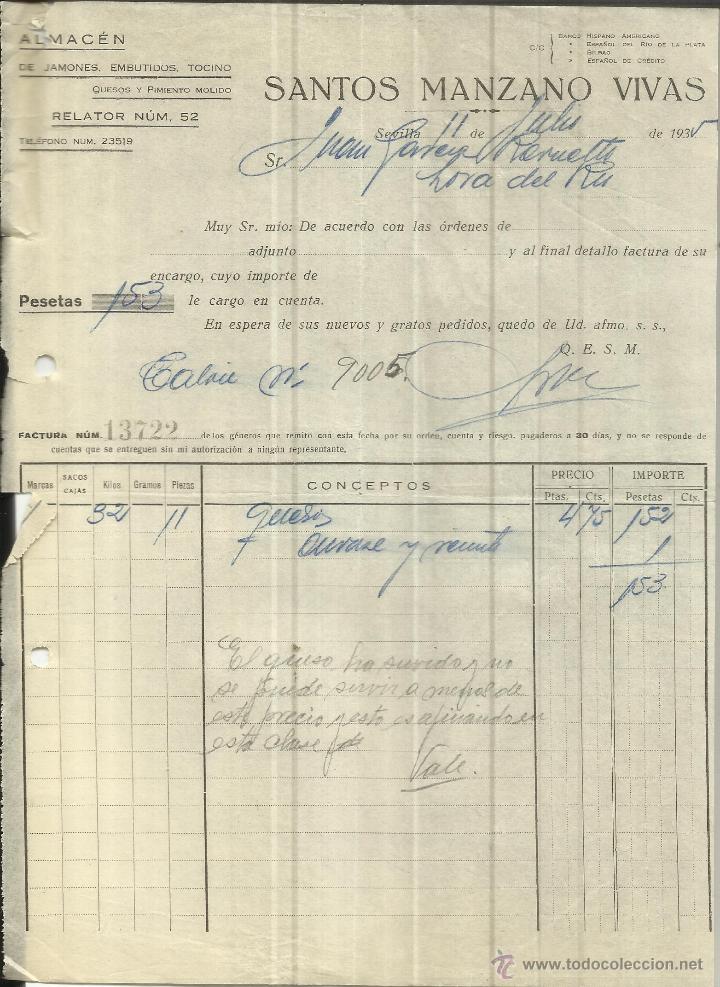 ALMACÉN
DE JAMONES, EMBUTIDOS, TOCINO
QUESOS Y PIMIENTO MOLIDO
RELATOR NÚM. 52
TELÉFONO NUM. 23519
C/C
BANCO HISPANO AMERICANO
» ESPAÑOL DEL RÍO DE LA PLATA
» BILBAO
» ESPAÑOL DE CRÉDITO
SANTOS MANZANO VIVAS
Sevilla 11 de Julio de 1935
Sr. Juan García
Lora del Rio
Muy Sr. mio: De acuerdo con las órdenes de
adjunto y al final detallo factura de su
encargo, cuyo importe de
Pesetas 153 le cargo en cuenta.
En espera de sus nuevos y gratos pedidos, quedo de Ud. afmo. s. s.,
Q. E. S. M.
Talon nº 9005.
FACTURA NÚM. 13722 de los géneros que remito con esta fecha por su orden, cuenta y riesgo, pagaderos a 30 días, y no se responde de
cuentas que se entreguen sin mi autorización a ningún representante.
Marcas SACOS CAJAS Kilos Gramos Piezas CONCEPTOS PRECIO Ptas. Cts. IMPORTE Pesetas Cts.
1 32 11 quesos 4 75 152
envase y 1
153
El queso ha suvido y no
se puede servir a menos de
este precio y esto es afinando en
esta clase
Vale.
www.todocoleccion.net